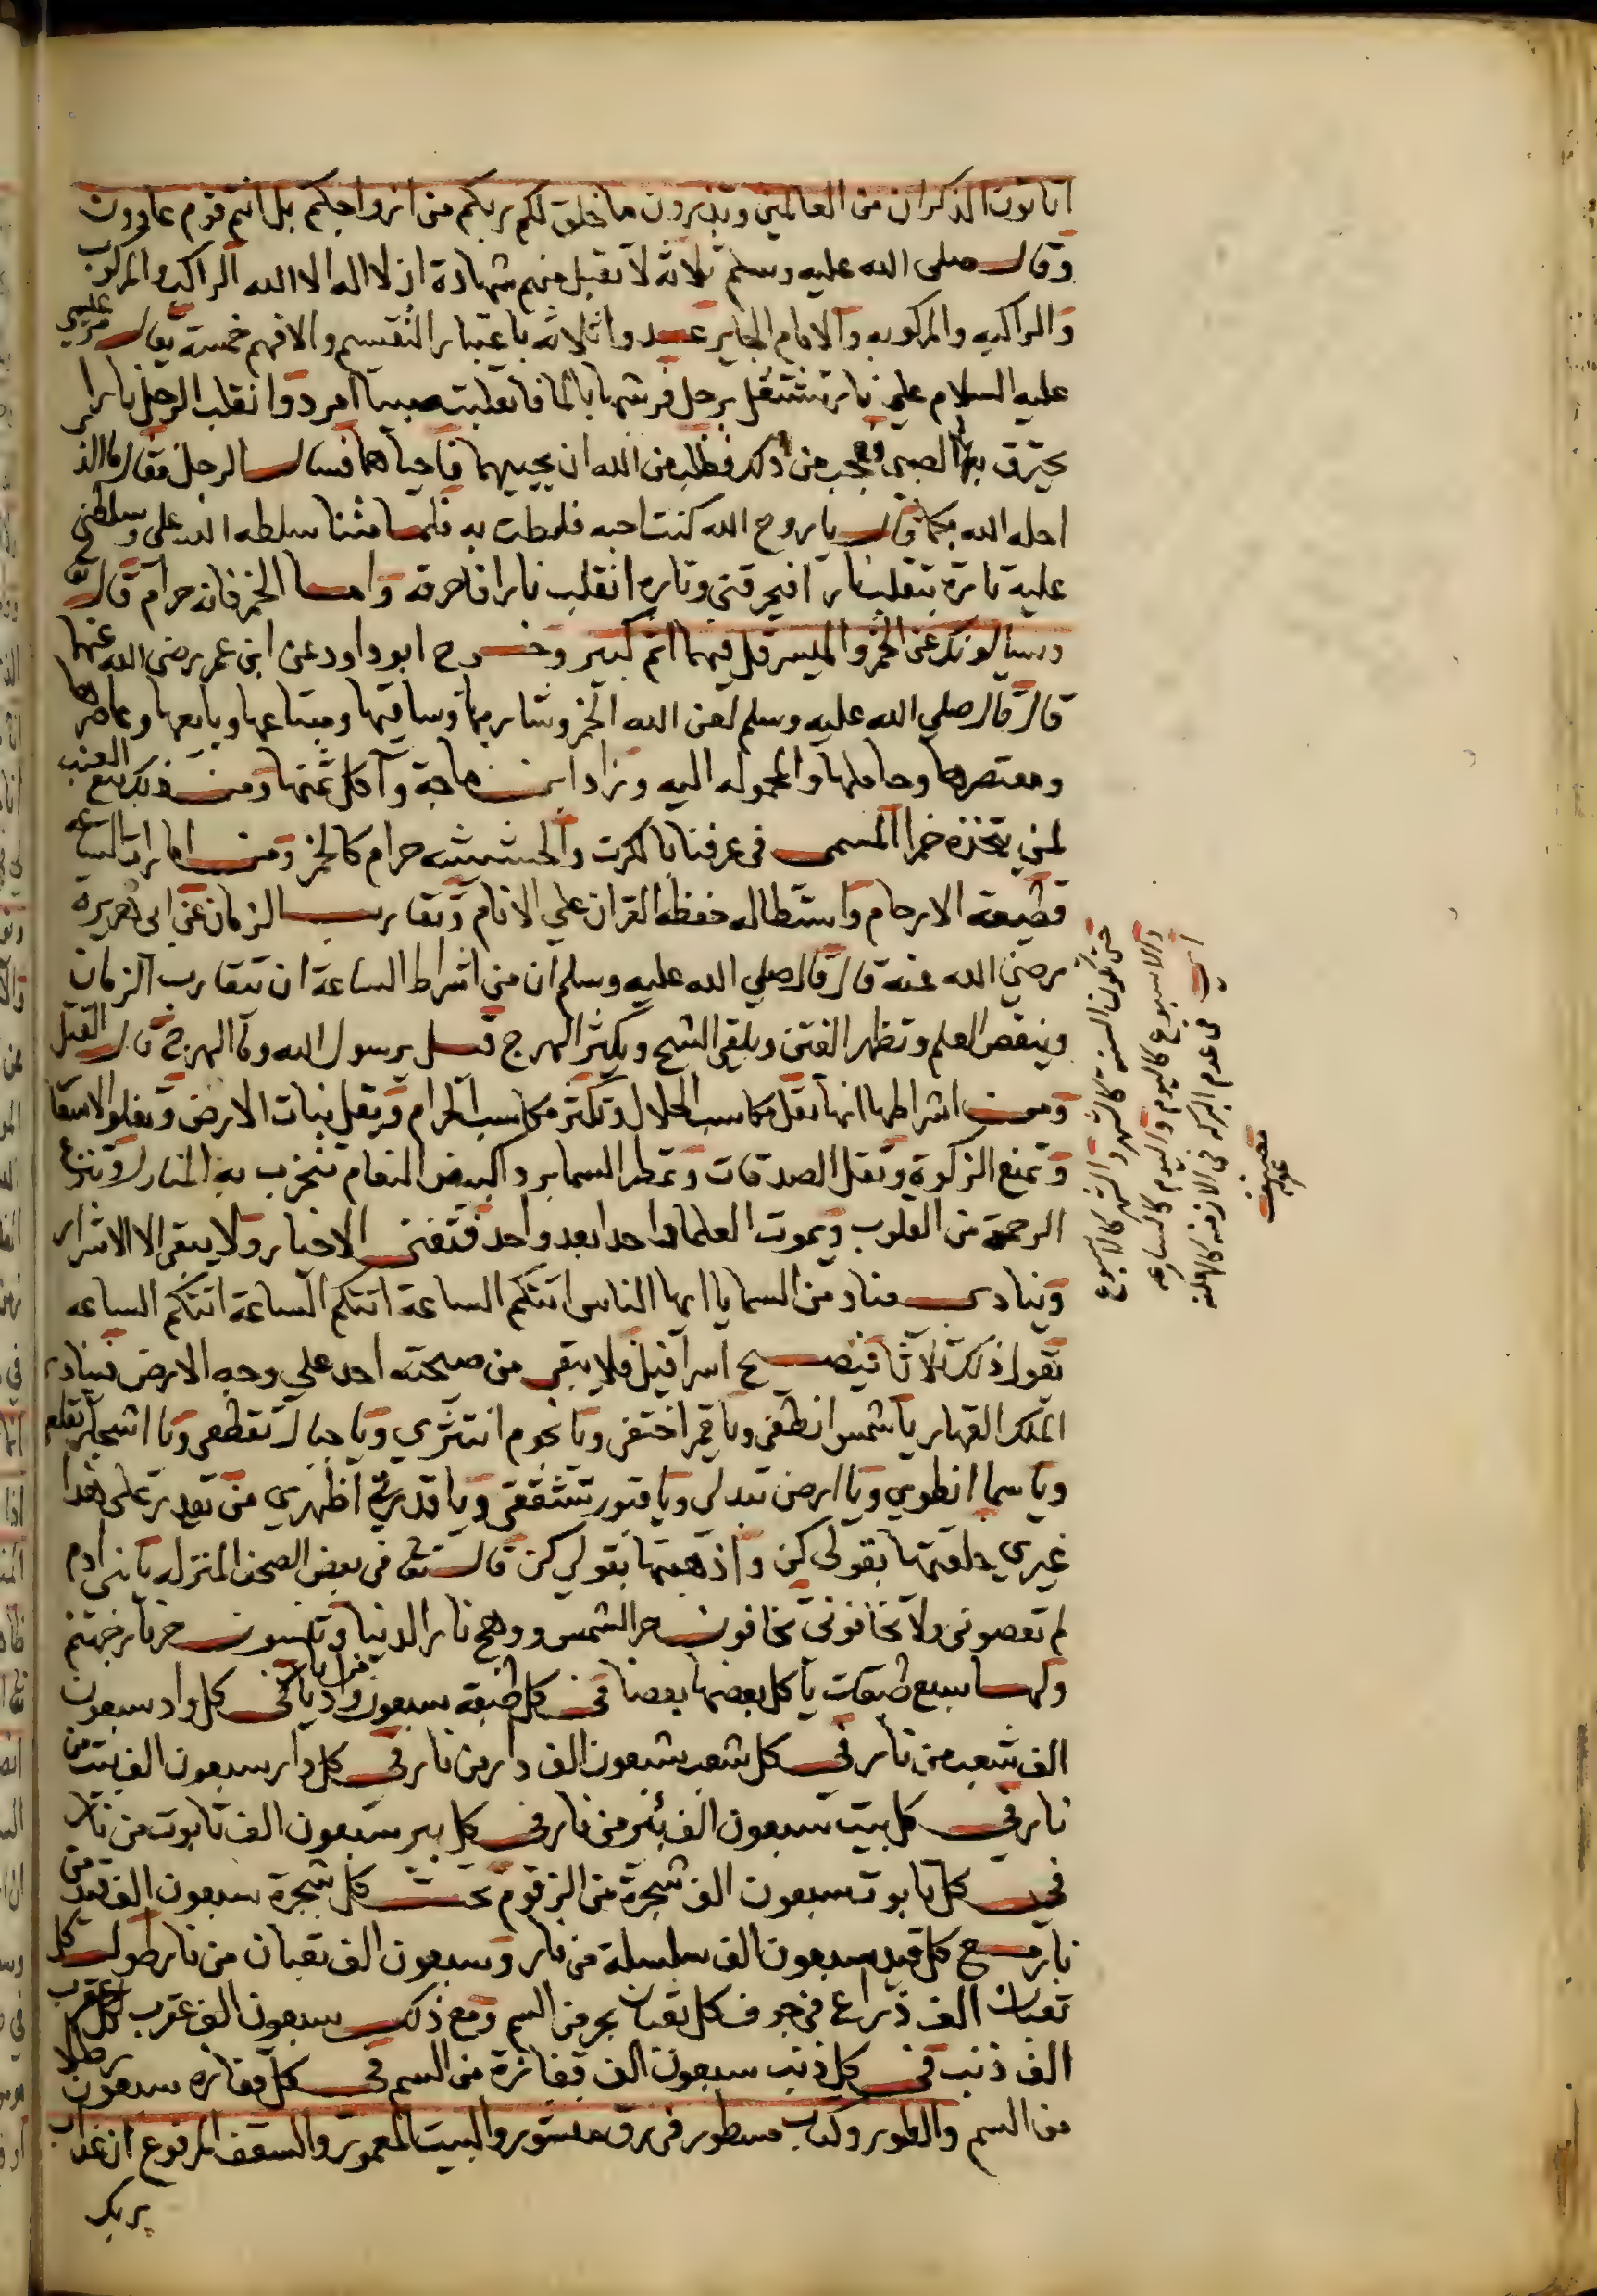 اتاتون الذكران من العالمين وتذرون ما خلق لكم ربكم من ازواجكم بل انتم قوم عادون
وقال صلى الله عليه وسلم ثلاثة لا تقبل منهم شهادة ان لا اله الا الله الراكب والمركوب
والراكبه والمركوبه والامام الجاير عدوا ثلاثه باعتبار التقسيم والافهم خمسة يقال مر عيسى
عليه السلام على نار تشتعل برجل فرشها بالما فانقلبت صبيا امرد وانقلب الرجل نارا
يحترق بها الصبي فعجب من ذلك فطلب من الله ان يحييهما فاحياهما فسال الرجل فقال ما الذ
احله الله بكما قال يا روح الله كنت احبه فلطت به فلما متنا سلطه الله علي وسلطني
عليه تارة ينقلب نارا فيحرقني وتاره انقلب نارا فاحرقه واما الخمر فانه حرام قال تع
ويسالونك عن الخمر والميسر قل فيهما اثم كبير وخرج ابو داود عن ابن عمر رضى الله عنهما
قال قال صلي الله عليه وسلم لعن الله الخمر وشاربها وساقيها ومبتاعها وبايعها وعاصرها
ومعتصرها وحاملها والمحموله اليه وزاد ابن ماجة وآكل ثمنها ومن ذلك بيع العنب
لمن يتخذه خمرا المسمى فى عرفنا بالكرت والحشيشه حرام كالخمر ومن امارات الساعه
قطيعة الارحام واستطاله حفظه القران علي الانام وتقارب الزمان عن ابى هريرة
رضي الله عنه قال قال صلي الله عليه وسلم ان من اشراط الساعة ان يتقارب الزمان
وينقص العلم وتظهر الفتن ويلقى الشح ويكثر الهرج قيل يرسول الله وما الهرج قال القتل
ومن اشراطها انها تقل مكاسب الحلال وتكثر مكاسب الحرام ويقل نبات الارض وتغلو الاسعا
وتمنع الزكوة وتقل الصدقات وتمطر السما برد اكبيض النعام تنخرب به المنازل وتنزع
الرحمة من القلوب ويموت العلما واحد ابعد واحد فتفنى الاخيار ولا يبقى الا الاشرار
وينادى مناد من السما يا ايها الناس اتتكم الساعة اتتكم الساعة اتتكم الساعه
تقول ذلك ثلاثا فيصيح اسرافيل فلا يبقى من صيحته احد على وجه الارض فينادى
الملك القهار يا شمس انطفى ويا قمر اختفى ويا نجوم انتثري ويا جبال تقطعى ويا اشجار تقلعى
ويا سما انطوي ويا ارض تبدلى ويا قبور تشققى ويا قدرتي اظهري من يقدر على هذا
غيري خلقتها بقولى كن واذهبتها بقولي كن قال تعا فى بعض الصحف المنزله يا بنى ادم
لم تعصونى ولا تخافونى تخافون حر الشمس ووهج نار الدنيا وتنسون حر نار جهنم
ولها سبع طبقات ياكل بعضها بعضا فى كل طبقه سبعون واديا من نار فى كل واد سبعون
الف شعب من نار فى كل شعب سبعون الف دار من نار فى كل دار سبعون الف بيت من
نار فى كل بيت سبعون الف بئر من نار فى كل بير سبعون الف تابوت من نار
فى كل تابوت سبعون الف شجرة من الزقوم تحت كل شجرة سبعون الف قيد من
نار مع كل قيد سبعون الف سلسلة من نار وسبعون الف ثعبان من نار طول كل
ثعبان الف ذراع فى جوف كل ثعبان بحر من السم ومع ذلك سبعون الف عقرب لكل عقرب
الف ذنب فى كل ذنب سبعون الف فقازة من السم فى كل فقازه سبعون رطلا
من السم والطور وكتاب مسطور فى رق منشور والبيت المعمور والسقف المرفوع ان عذاب
ربك
حتى تكون السنة كالشهر والشهر كالاسبوع
والاسبوع كاليوم واليوم كالساعه
اى فى عدم البركه فى الازمنه كالهلنه